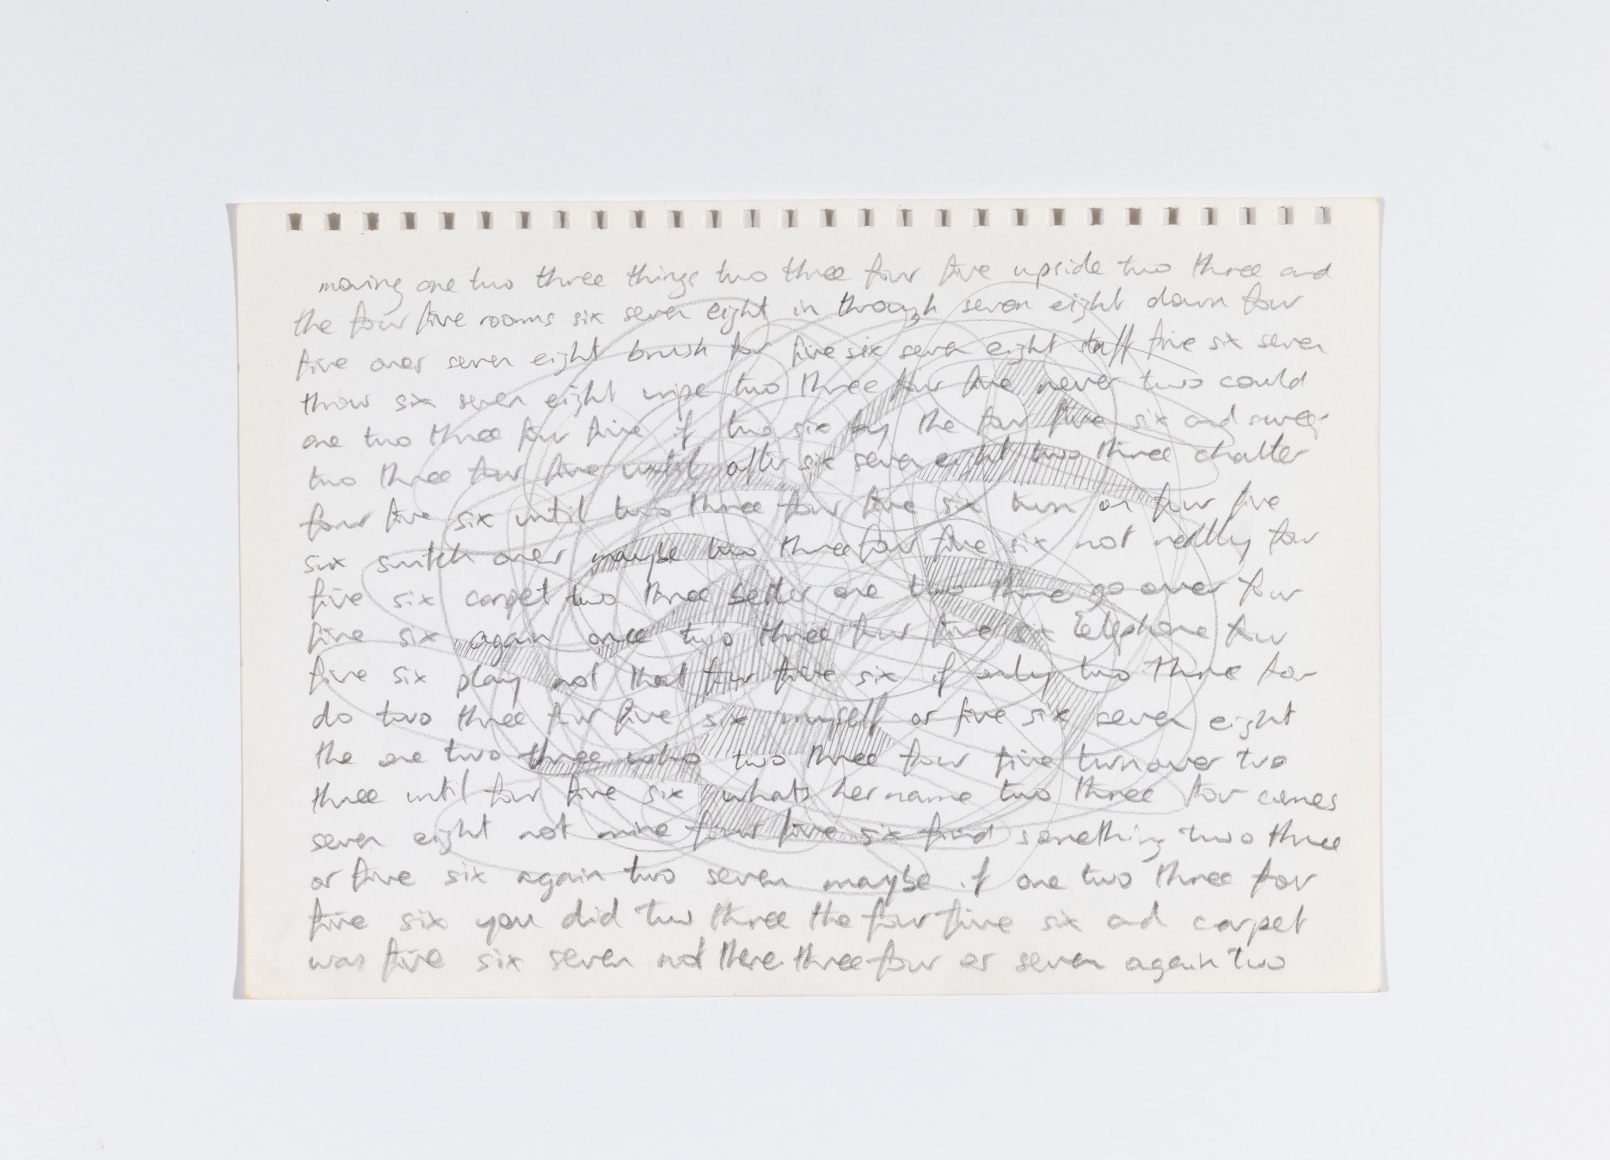 moving one two three things two three four five upside two three and
the four five rooms six seven eight in through seven eight down four
five over seven eight brush four five six seven eight staff five six seven
throw six seven eight wipe two three four five never two could
one two three four five if two six by the four five six and sweep
two three four five until after six seven eight two three chatter
four five six until two three four five six turn on four five
six switch over maybe two three four five six not really four
five six carpet two three better one two three go over four
five six again once two three four five six telephone four
five six play not that four five six if only two three four
do two three four five six myself or five six seven eight
the one two three who two three four five turnover two
three until four five six whats her name two three four comes
seven eight not mine four five six find something two three
or five six again two seven maybe if one two three four
five six you did two three the four five six and carpet
was five six seven not there three four or seven again two